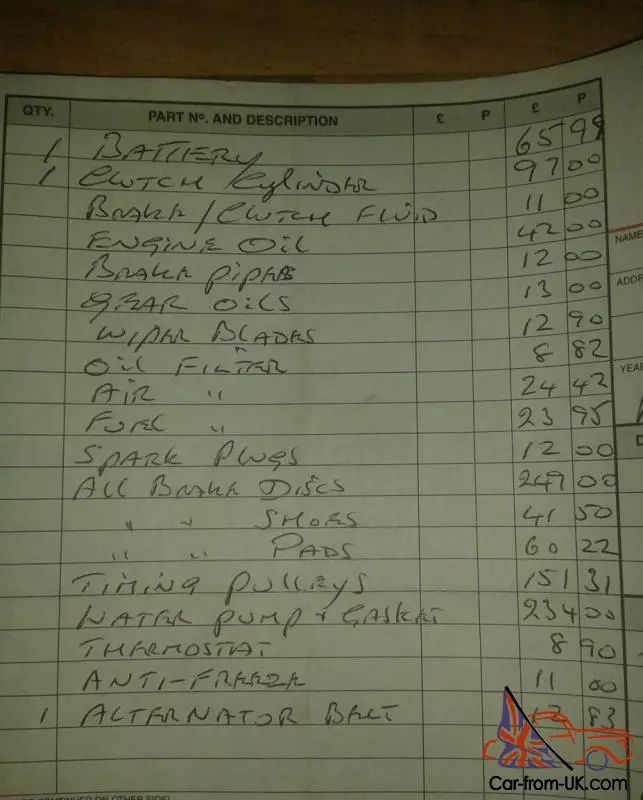 QTY. PART Nº. AND DESCRIPTION £ P £ P
1 BATTERY 65 99
1 CLUTCH CYLINDER 97 00
BRAKE / CLUTCH FLUID 11 00
ENGINE OIL 42 00
BRAKE PIPES 12 00
GEAR OILS 13 00
WIPER BLADES 12 90
OIL FILTER 8 82
AIR " 24 42
FUEL " 23 95
SPARK PLUGS 12 00
ALL BRAKE DISCS 249 00
" " SHOES 41 50
" " PADS 60 22
TIMING PULLEYS 151 31
WATER PUMP + GASKET 234 00
THERMOSTAT 8 90
ANTI-FREEZE 11 00
1 ALTERNATOR BELT 83
CONTINUED ON OTHER SIDE)
NAME
ADDR
YEAR
Car-from-UK.com